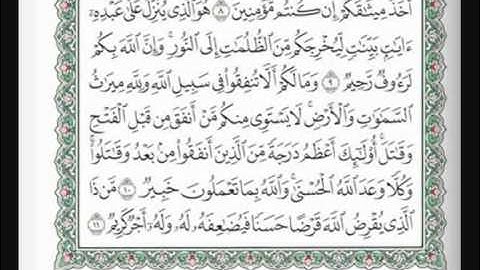 أَخَذَ مِيثَٰقَكُمْ إِن كُنتُم مُّؤْمِنِينَ ٨ هُوَ ٱلَّذِى يُنَزِّلُ عَلَىٰ عَبْدِهِۦٓ
ءَايَٰتٍۭ بَيِّنَٰتٍ لِّيُخْرِجَكُم مِّنَ ٱلظُّلُمَٰتِ إِلَى ٱلنُّورِ ۚ وَإِنَّ ٱللَّهَ بِكُمْ
لَرَءُوفٌ رَّحِيمٌ ٩ وَمَا لَكُمْ أَلَّا تُنفِقُوا۟ فِى سَبِيلِ ٱللَّهِ وَلِلَّهِ مِيرَٰثُ
ٱلسَّمَٰوَٰتِ وَٱلْأَرْضِ ۚ لَا يَسْتَوِى مِنكُم مَّنْ أَنفَقَ مِن قَبْلِ ٱلْفَتْحِ
وَقَٰتَلَ ۚ أُو۟لَٰٓئِكَ أَعْظَمُ دَرَجَةً مِّنَ ٱلَّذِينَ أَنفَقُوا۟ مِنۢ بَعْدُ وَقَٰتَلُوا۟ ۚ
وَكُلًّا وَعَدَ ٱللَّهُ ٱلْحُسْنَىٰ ۚ وَٱللَّهُ بِمَا تَعْمَلُونَ خَبِيرٌ ١٠ مَّن ذَا
ٱلَّذِى يُقْرِضُ ٱللَّهَ قَرْضًا حَسَنًا فَيُضَٰعِفَهُۥ لَهُۥ وَلَهُۥٓ أَجْرٌ كَرِيمٌ ١١